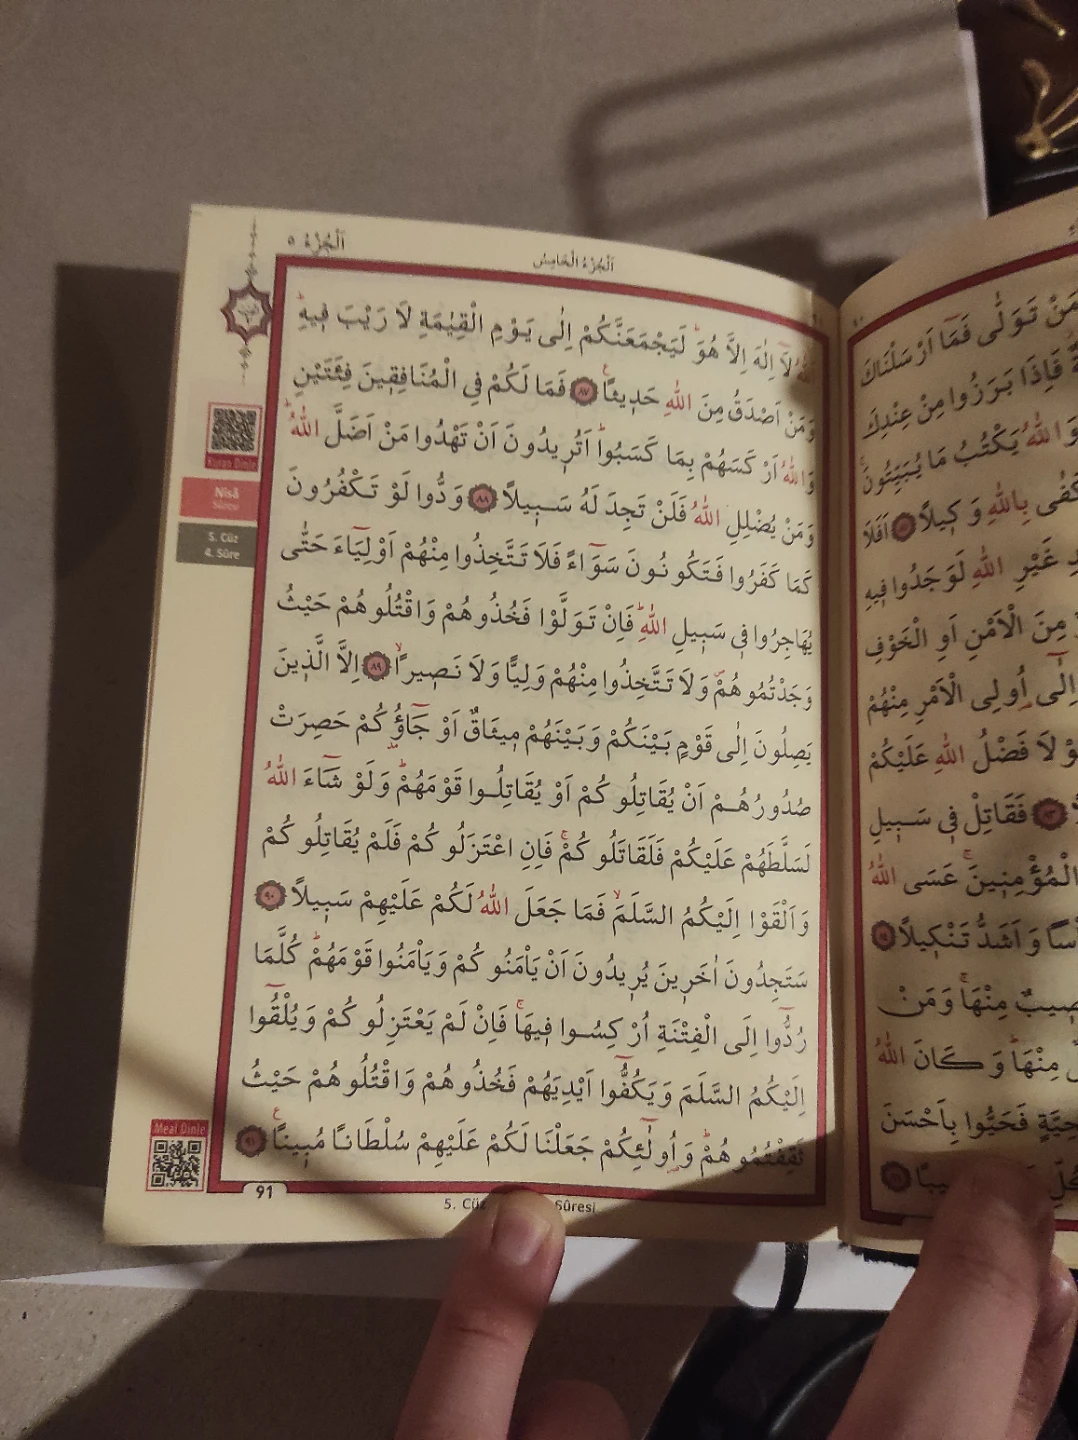 اَلْجُزْءُ ٥
اَلْجُزْءُ الْخَامِسُ
اَللّٰهُ لَٓا اِلٰهَ اِلَّا هُوَۜ لَيَجْمَعَنَّكُمْ اِلٰى يَوْمِ الْقِيٰمَةِ لَا رَيْبَ ف۪يهِۜ
وَمَنْ اَصْدَقُ مِنَ اللّٰهِ حَد۪يثًا۟ ﴿٨٧﴾ فَمَا لَكُمْ فِي الْمُنَافِق۪ينَ فِئَتَيْنِ
وَاللّٰهُ اَرْكَسَهُمْ بِمَا كَسَبُواۜ اَتُر۪يدُونَ اَنْ تَهْدُوا مَنْ اَضَلَّ اللّٰهُۜ
وَمَنْ يُضْلِلِ اللّٰهُ فَلَنْ تَجِدَ لَهُ سَب۪يلًا ﴿٨٨﴾ وَدُّوا لَوْ تَكْفُرُونَ
كَمَا كَفَرُوا فَتَكُونُونَ سَوَٓاءً فَلَا تَتَّخِذُوا مِنْهُمْ اَوْلِيَٓاءَ حَتّٰى
يُهَاجِرُوا ف۪ي سَب۪يلِ اللّٰهِۜ فَاِنْ تَوَلَّوْا فَخُذُوهُمْ وَاقْتُلُوهُمْ حَيْثُ
وَجَدْتُمُوهُمْۖ وَلَا تَتَّخِذُوا مِنْهُمْ وَلِيًّا وَلَا نَص۪يرًاۙ ﴿٨٩﴾ اِلَّا الَّذ۪ينَ
يَصِلُونَ اِلٰى قَوْمٍ بَيْنَكُمْ وَبَيْنَهُمْ م۪يثَاقٌ اَوْ جَٓاؤُ۫كُمْ حَصِرَتْ
صُدُورُهُمْ اَنْ يُقَاتِلُوكُمْ اَوْ يُقَاتِلُوا قَوْمَهُمْۜ وَلَوْ شَٓاءَ اللّٰهُ
لَسَلَّطَهُمْ عَلَيْكُمْ فَلَقَاتَلُوكُمْۚ فَاِنِ اعْتَزَلُوكُمْ فَلَمْ يُقَاتِلُوكُمْ
وَاَلْقَوْا اِلَيْكُمُ السَّلَمَۙ فَمَا جَعَلَ اللّٰهُ لَكُمْ عَلَيْهِمْ سَب۪يلًا ﴿٩٠﴾
سَتَجِدُونَ اٰخَر۪ينَ يُر۪يدُونَ اَنْ يَأْمَنُوكُمْ وَيَأْمَنُوا قَوْمَهُمْۜ كُلَّمَا
رُدُّٓوا اِلَى الْفِتْنَةِ اُرْكِسُوا ف۪يهَاۚ فَاِنْ لَمْ يَعْتَزِلُوكُمْ وَيُلْقُٓوا
اِلَيْكُمُ السَّلَمَ وَيَكُفُّٓوا اَيْدِيَهُمْ فَخُذُوهُمْ وَاقْتُلُوهُمْ حَيْثُ
ثَقِفْتُمُوهُمْۜ وَاُو۬لٰٓئِكُمْ جَعَلْنَا لَكُمْ عَلَيْهِمْ سُلْطَانًا مُب۪ينًا۟ ﴿٩١﴾
Kuran Dinle
Nisâ
Sûresi
5. Cüz
4. Sûre
Meal Dinle
91
5. Cüz
Sûresi
مَنْ تَوَلّٰى فَمَٓا اَرْسَلْنَاكَ
فَاِذَا بَرَزُوا مِنْ عِنْدِكَ
وَاللّٰهُ يَكْتُبُ مَا يُبَيِّتُونَۚ
كَفٰى بِاللّٰهِ وَك۪يلًا ﴿٨١﴾ اَفَلَا
غَيْرِ اللّٰهِ لَوَجَدُوا ف۪يهِ
مِنَ الْاَمْنِ اَوِ الْخَوْفِ
اِلٰٓى اُو۬لِي الْاَمْرِ مِنْهُمْ
لَا فَضْلُ اللّٰهِ عَلَيْكُمْ
﴿٨٣﴾ فَقَاتِلْ ف۪ي سَب۪يلِ
الْمُؤْمِن۪ينَۚ عَسَى اللّٰهُ
وَاَشَدُّ تَنْك۪يلًا ﴿٨٤﴾
مِنْهَاۚ وَمَنْ
مِنْهَاۜ وَكَانَ اللّٰهُ
فَحَيُّوا بِاَحْسَنَ
﴿٨٦﴾